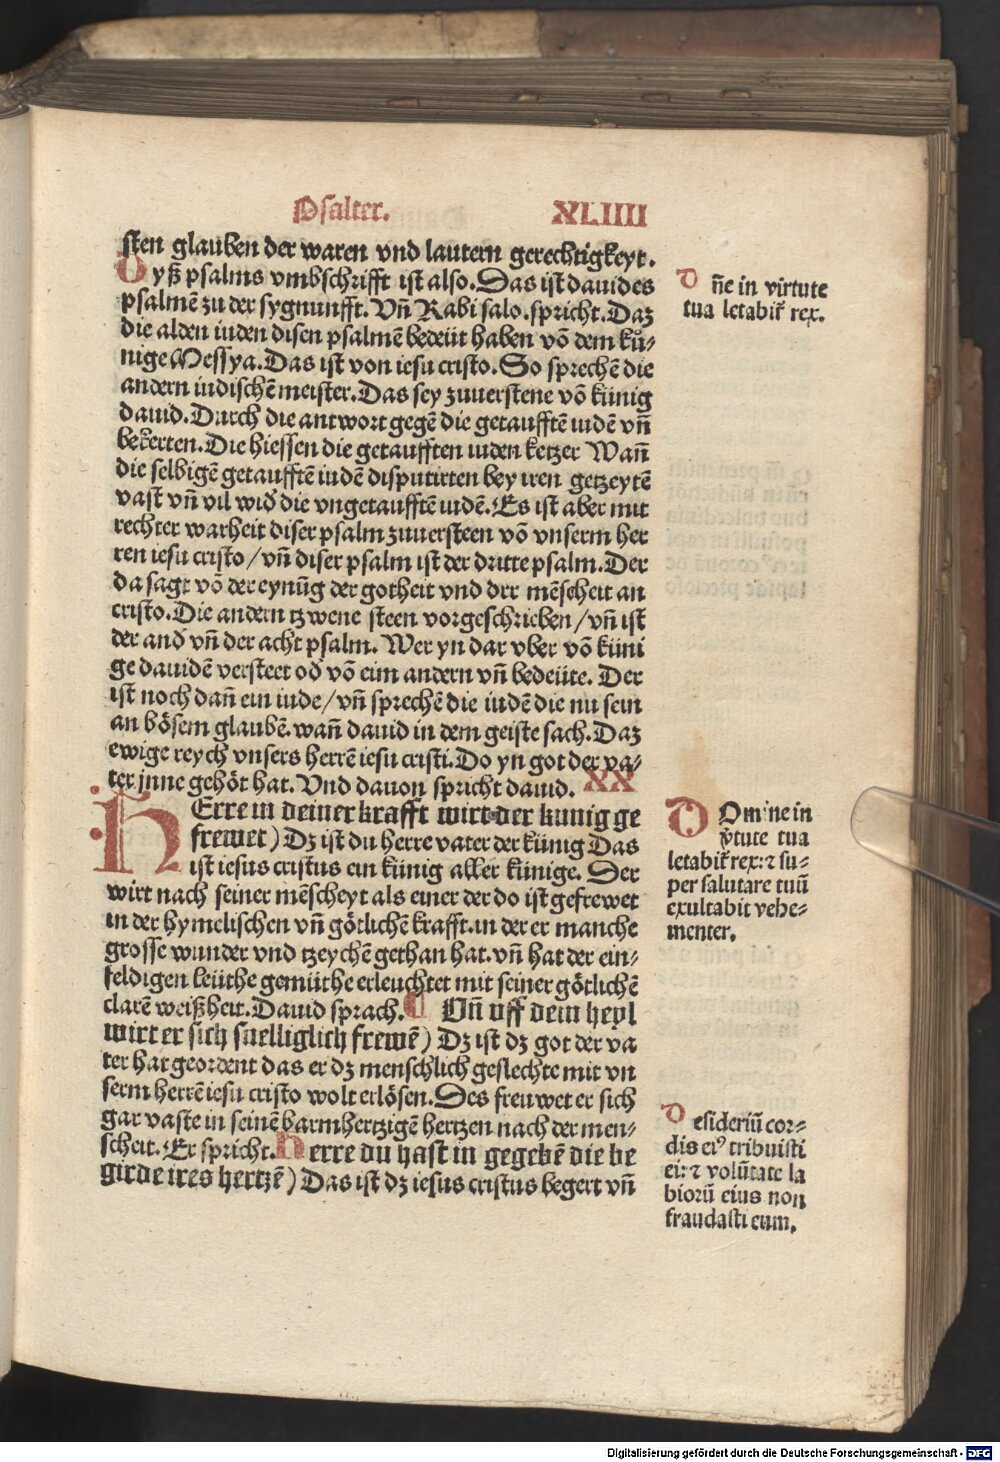 Psalter. XLIIII
sten glauben der waren vnd lautern gerechtigkeyt.
Dyß psalms vmbschrifft ist also. Das ist dauides
psalmē zu der sygnunfft. Vñ Rabi salo. spricht. Daz
die alden iuden disen psalmē bedeüt haben vō dem kůͤ⸗
nige Messya. Das ist von iesu cristo. So sprechē die
andern iudischē meister. Das sey zuuerstene vō künig
dauid. Durch die antwort gegē die getaufftē iudē vñ
bekerten. Die hiessen die getaufften iuden ketzer Wañ
die selbigē getaufftē iudē disputirten bey iren getzeytē
vast vñ vil wid̓ die vngetaufftē iudē. Es ist aber mit
rechter warheit diser psalm zuuersteen vō vnserm her
ren iesu cristo / vñ diser psalm ist der dritte psalm. Der
da sagt vō der eynūg der gotheit vnd drr mēscheit an
cristo. Die andern tzwene steen vorgeschrieben / vñ ist
der and̓ vñ der acht psalm. Wer yn dar vber vō küni
ge dauidē versteet od̓ vō eim andern vñ bedeüte. Der
ist noch dañ ein iude / vñ sprechē die iudē die nu sein
an bösem glaubē. wañ dauid in dem geiste sach. Daz
ewige reych vnsers herrē iesu cristi. Do yn got der va⸗
ter jnne gehöt hat. Vnd dauon spricht dauid. XX
HErre in deiner krafft wirt der kunig ge
frewet) Dz ist du herre vater der künig Das
ist iesus cristus ein künig aller künige. Der
wirt nach seiner mēscheyt als einer der do ist gefrewet
in der hymelischen vñ götlichē krafft. in der er manche
grosse wunder vnd tzeychē gethan hat. vñ hat der ein⸗
feldigen leüthe gemüthe erleuchtet mit seiner götlichē
clarē weißheit. Dauid sprach. Vñ vff dein heyl
wirt er sich snelliglich frewē) Dz ist dz got der va
ter hat geordent das er dz menschlich geslechte mit vn
serm herrē iesu cristo wolt erlösen. Des freuwet er sich
gar vaste in seinē barmhertzigē hertzen nach der men⸗
scheit. Er spricht. Herre du hast in gegebē die be
girde ires hertzē) Das ist dz iesus cristus begert vñ
Dñe in virtute
tua letabit̄ rex.
DOmine in
v̓tute tua
letabit̄ rex: ⁊ su⸗
per salutare tuū
exultabit vehe⸗
menter.
Desideriū cor⸗
dis eiꝰ tribuisti
ei: ⁊ volūtate la
biorū eius non
fraudasti eum.
Digitalisierung gefördert durch die Deutsche Forschungsgemeinschaft - DFG